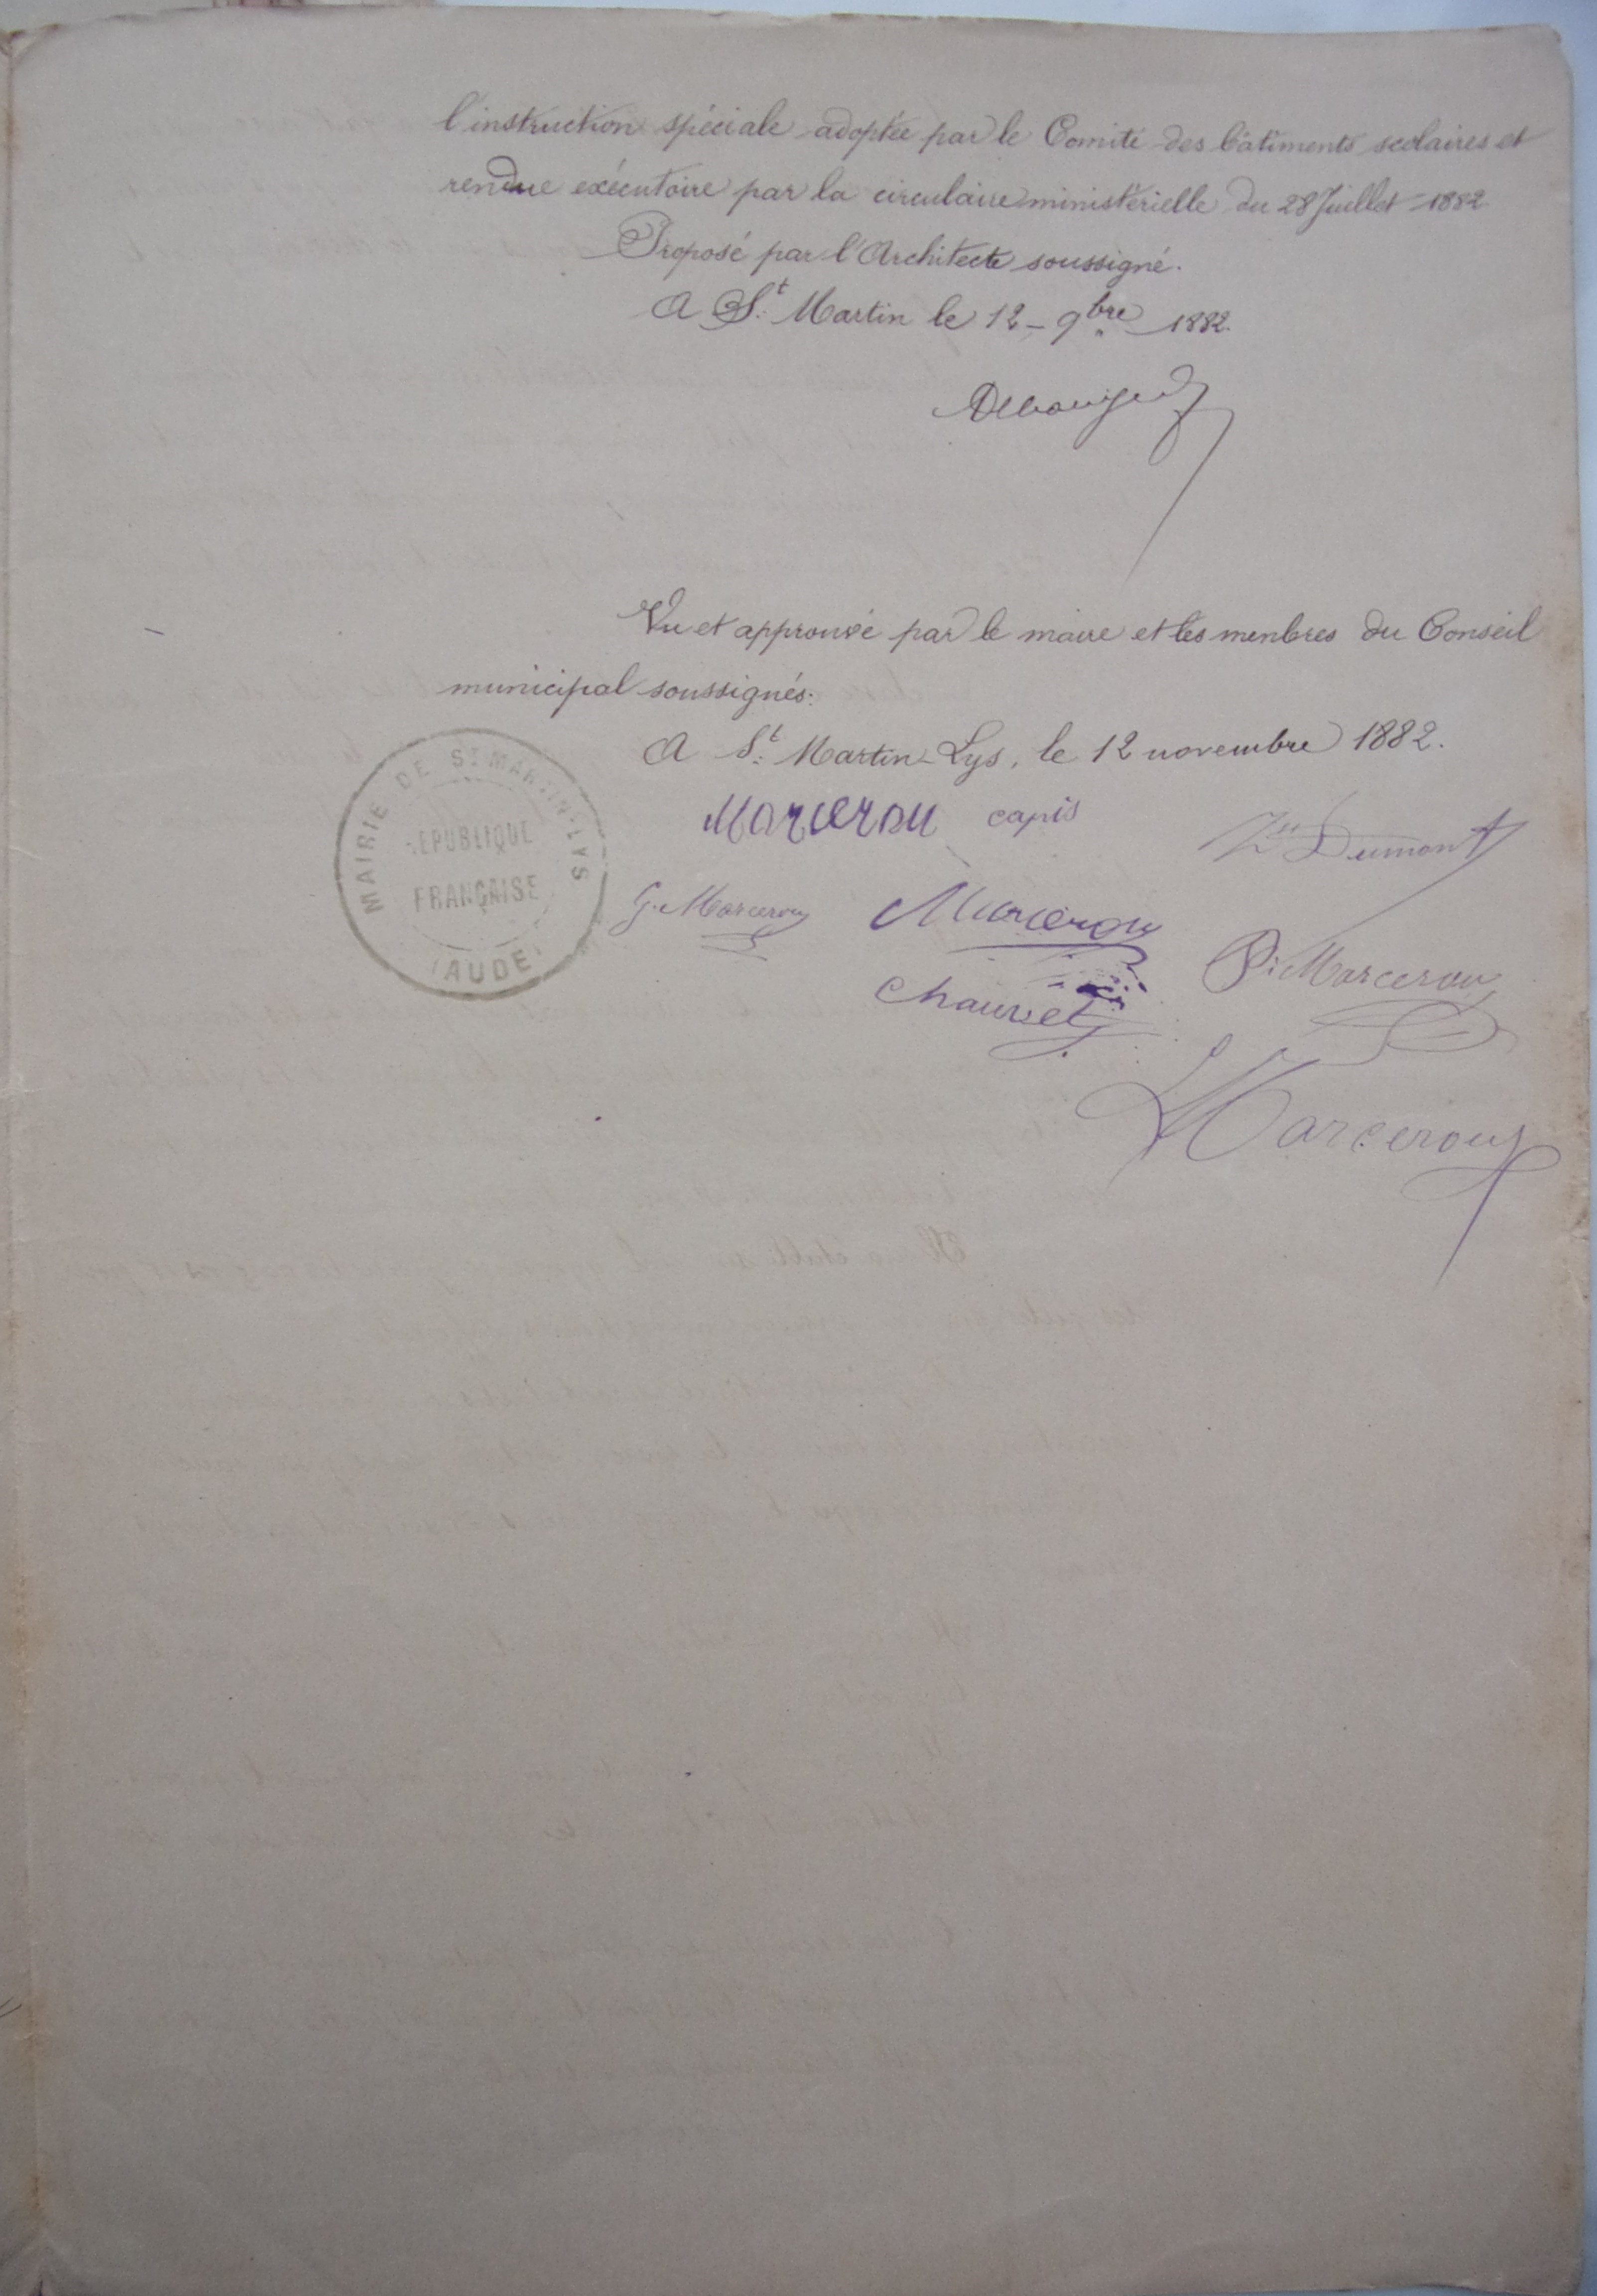 l'instruction spéciale adoptée par le Comité des bâtiments scolaires et
rendue exécutoire par la circulaire ministérielle du 28 Juillet 1882
Proposé par l'Architecte soussigné.
A St. Martin le 12 - 9bre 1882.
Vu et approuvé par le maire et les menbres du Conseil
municipal soussignés:
A St. Martin-Lys, le 12 novembre 1882.
MAIRIE DE ST MARTIN-LYS
REPUBLIQUE
FRANÇAISE
AUDE
Marcerou capis
Dumont
G. Marcerou Marcerou
P: Marcerou
Chauvet
Marcerou